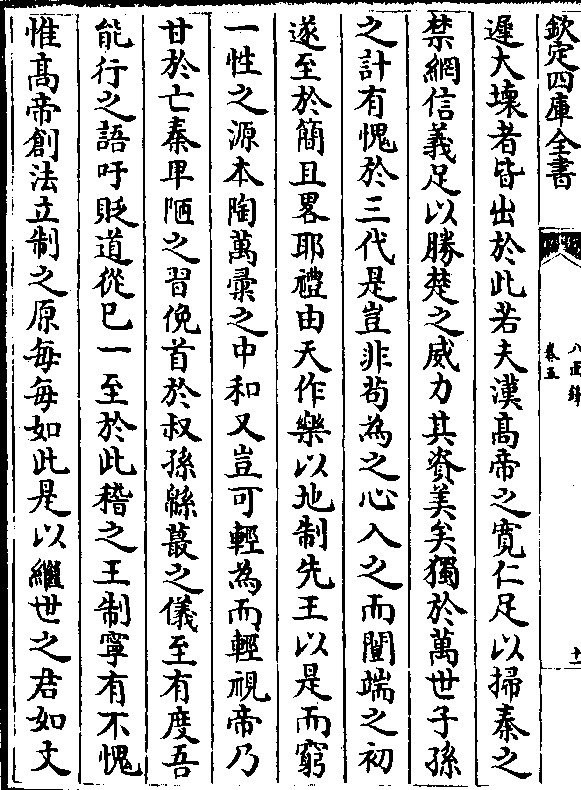 欽定四庫全書
八面鋒
卷五
十一
遲大壞者皆出於此若夫漢高帝之寛仁足以掃秦之
禁網信義足以勝楚之威力其資美矣獨於萬世子孫
之計有愧於三代是豈非茍為之心入之而闓端之初
遂至於簡且畧耶禮由天作樂以地制先王以是而窮
一性之源本陶萬彚之中和又豈可輕為而輕視帝乃
甘於亡秦卑陋之習俛首於叔孫緜蕞之儀至有度吾
能行之語吁貶道從已一至於此稽之王制寧有不愧
惟髙帝創法立制之原每每如此是以繼世之君如文